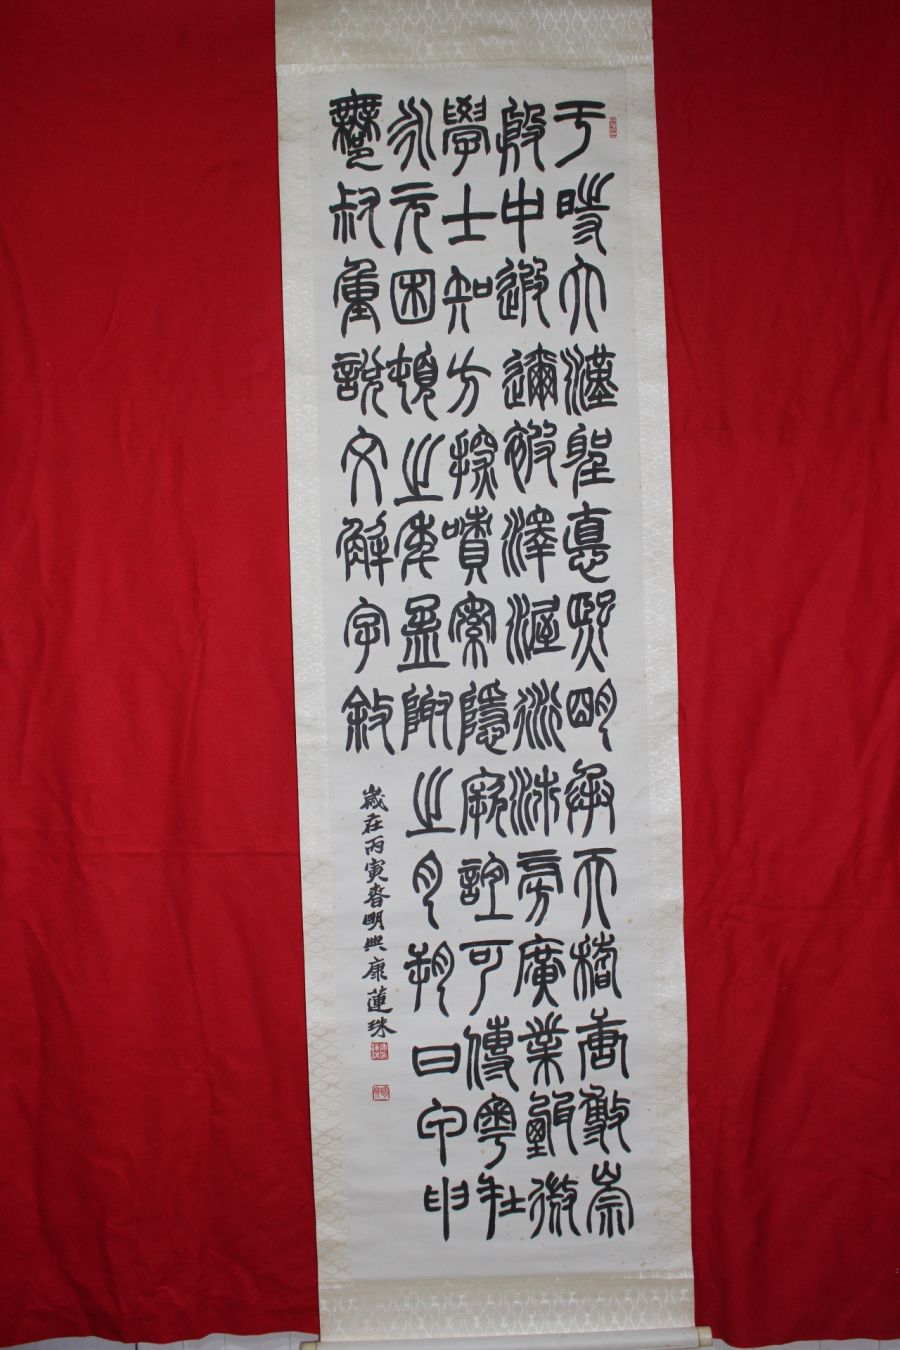 于時大漢聖德熙明承天稽唐敷崇
殷中遐邇被澤渥衍沛滂廣業甄微
學士知方探嘖索隱厥誼可傳粵在
永元困頓之年孟陬之月朔日甲申
鄦叔重說文解字敘
歲在丙寅春明興康蓮珠